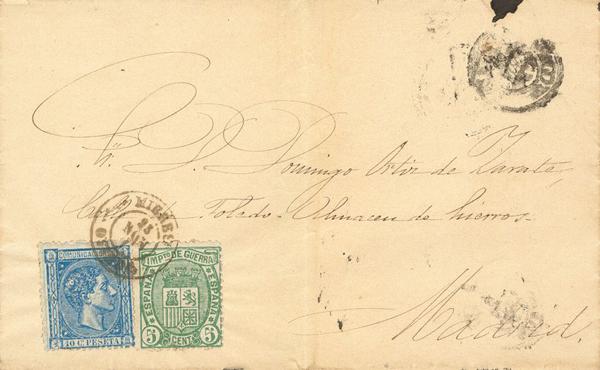 Sr. D. Domingo Ortiz de Zarate,
de Toledo - Almacen de hierros -
Madrid.
MIERES
25
NOV
COMUNICACIONES
10 C. PESETA
IMPTO DE GUERRA
ESPAÑA
ESPAÑA
5
CENTS
5